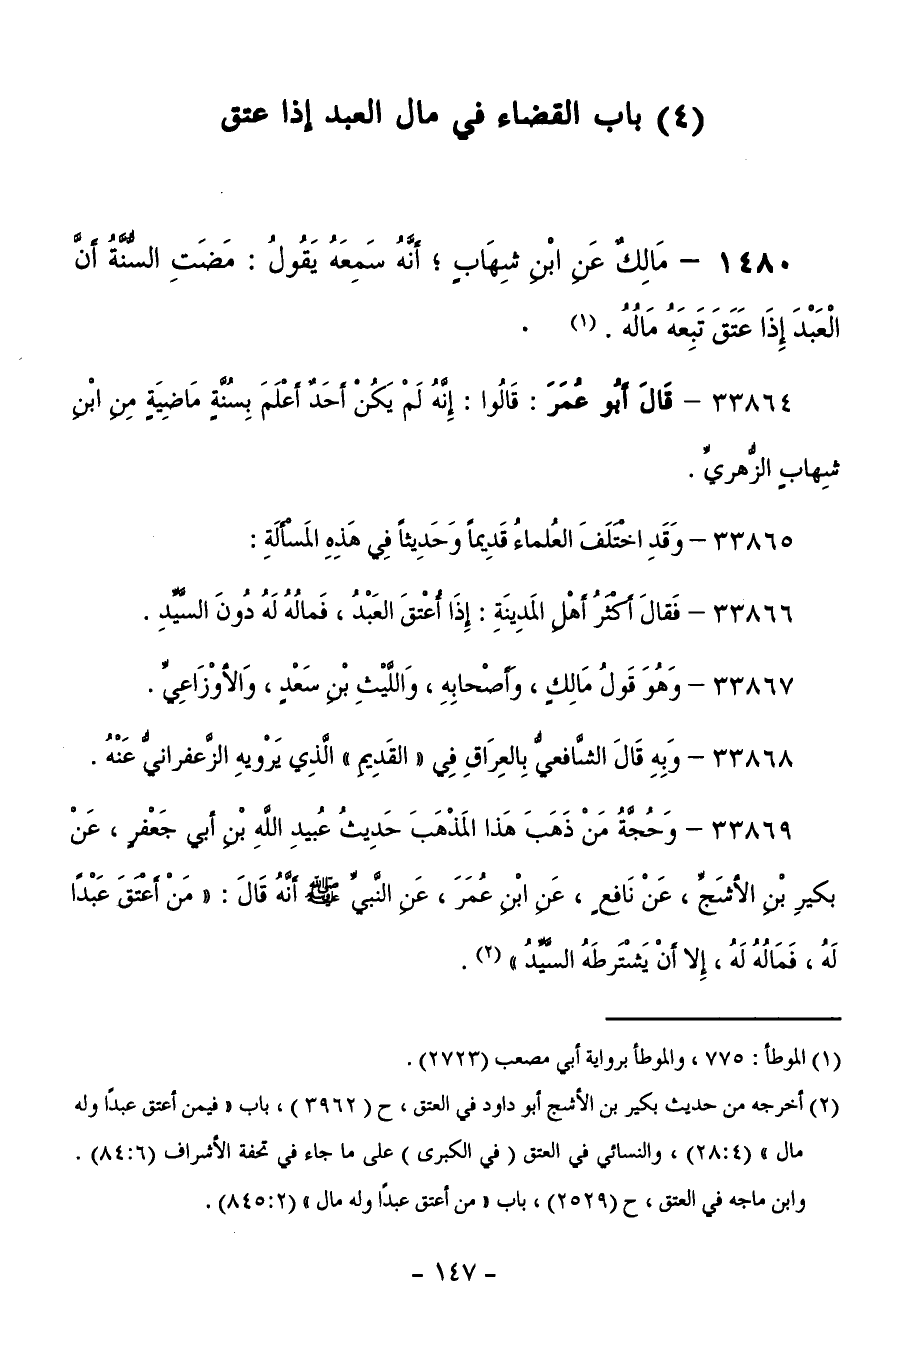 (٤) باب القضاء في مال العبد إذا عتق
١٤٨٠ – مَالِكٌ عَنِ ابْنِ شِهَابٍ ؛ أَنَّهُ سَمِعَهُ يَقُولُ : مَضَتِ السُّنَّةُ أَنَّ
الْعَبْدَ إِذَا عَتَقَ تَبِعَهُ مَالُهُ . (١)
٣٣٨٦٤ – قَالَ أَبُو عُمَرَ : قَالُوا : إِنَّهُ لَمْ يَكُنْ أَحَدٌ أَعْلَمَ بِسُنَّةٍ مَاضِيَةٍ مِنِ ابْنِ
شِهابٍ الزُّهريِّ .
٣٣٨٦٥ – وَقَدِ اخْتَلَفَ العُلماءُ قَدِيماً وَحَدِيثاً فِي هَذِهِ المَسْأَلَةِ :
٣٣٨٦٦ – فَقالَ أَكْثَرُ أَهْلِ المَدِينَةِ : إِذَا أُعْتقَ العَبْدُ ، فَمالُهُ لَهُ دُونَ السَّيِّدِ .
٣٣٨٦٧ – وَهُوَ قَولُ مَالِكٍ ، وَأَصْحابِهِ ، وَاللَّيْثِ بْنِ سَعْدٍ ، وَالأوْزَاعيِّ .
٣٣٨٦٨ – وَبِهِ قَالَ الشَّافعيُّ بِالعِرَاقِ فِي « القَدِيمِ » الَّذِي يَرْويهِ الزَّعفرانيُّ عَنْهُ .
٣٣٨٦٩ – وَحُجَّةُ مَنْ ذَهَبَ هَذا المَذْهَبَ حَدِيثُ عُبيدِ اللَّهِ بْنِ أبي جَعْفرٍ ، عَنْ
بكيرِ بْنِ الأشَجِّ ، عَنْ نَافعٍ ، عَنِ ابْنِ عُمَرَ ، عَنِ النَّبيِّ ﷺ أَنَّهُ قَالَ : « مَنْ أَعتَقَ عَبْدًا
لَهُ ، فَمَالُهُ لَهُ ، إِلا أَنْ يَشْتَرطَهُ السَّيِّدُ » (٢) .
(١) الموطأ : ٧٧٥ ، والموطأ برواية أبي مصعب (٢٧٢٣) .
(٢) أخرجه من حديث بكير بن الأشج أبو داود في العتق ، ح ( ٣٩٦٢ ) ، باب « فيمن أعتق عبدًا وله
مال » (٢٨:٤) ، والنسائي في العتق ( في الكبرى ) على ما جاء في تحفة الأشراف (٨٤:٦) .
وابن ماجه في العتق ، ح (٢٥٢٩) ، باب « من أعتق عبدًا وله مال » (٨٤٥:٢) .
– ١٤٧ –